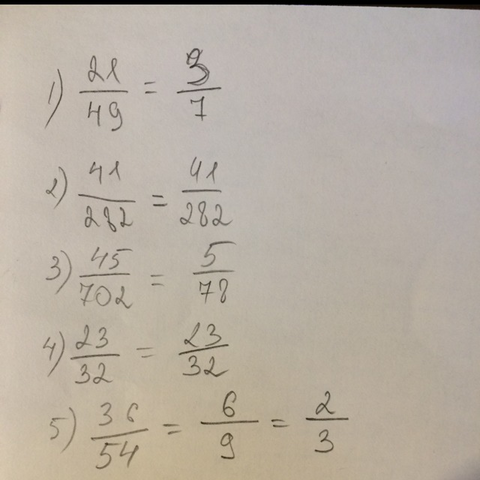 1) 21/49 = 3/7
2) 41/282 = 41/282
3) 45/702 = 5/78
4) 23/32 = 23/32
5) 36/54 = 6/9 = 2/3